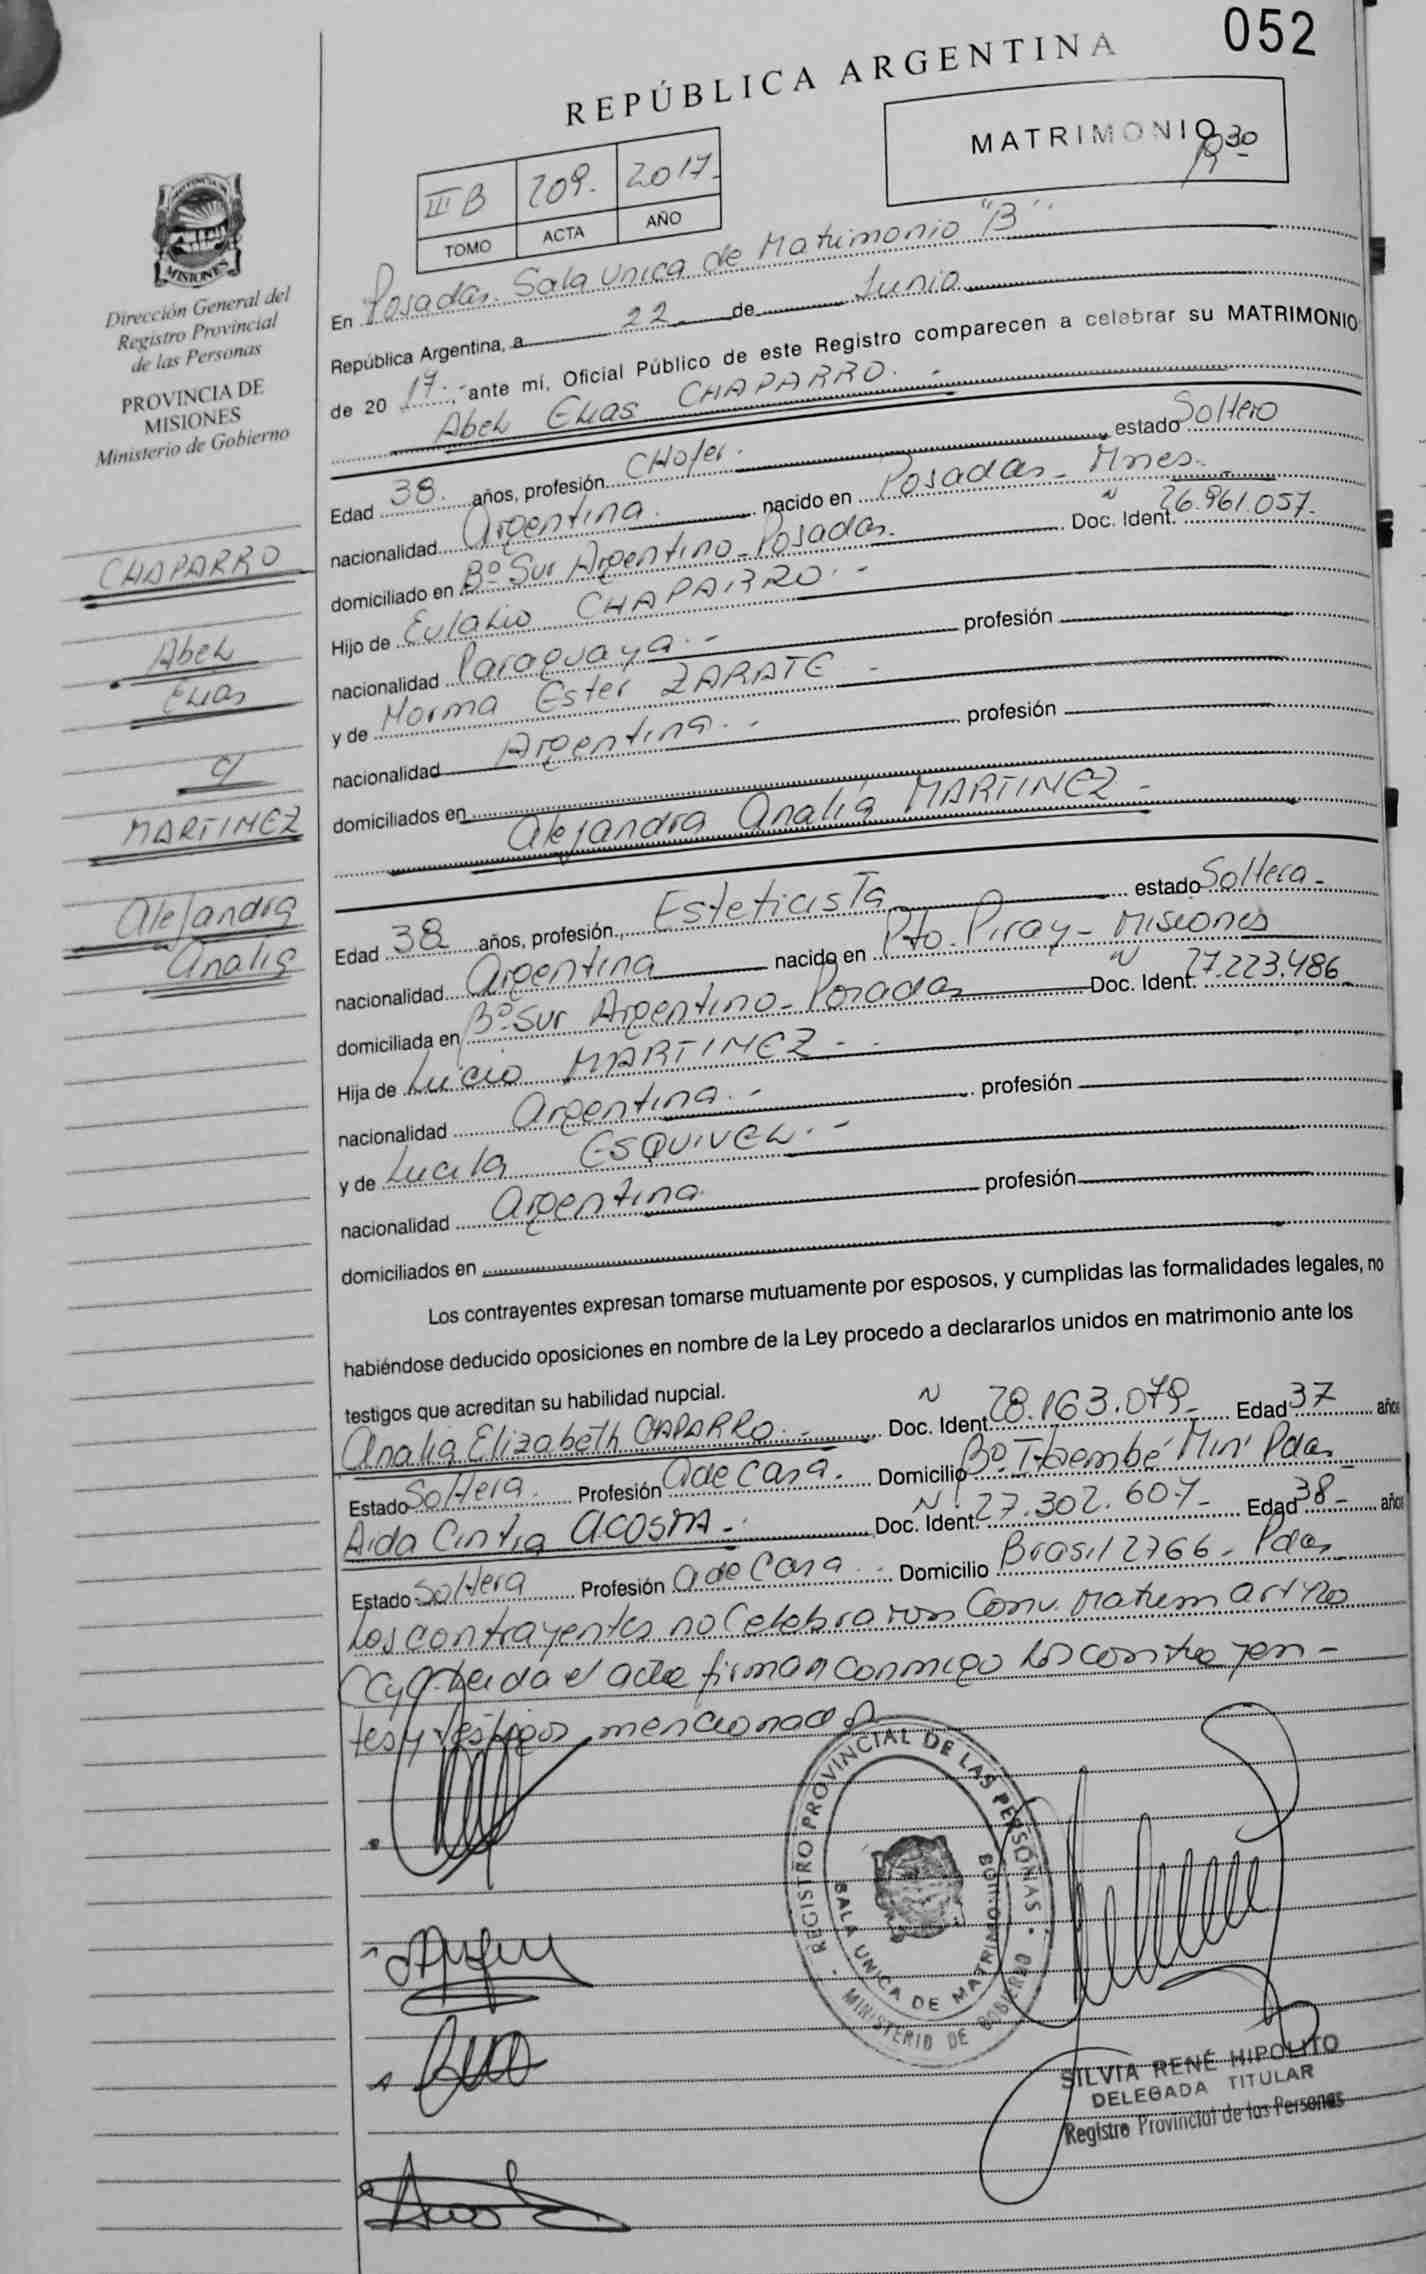 052
REPÚBLICA ARGENTINA
MATRIMONIO
1930
III B 209. 2017.
TOMO ACTA AÑO
MISIONES
Dirección General del
Registro Provincial
de las Personas
PROVINCIA DE
MISIONES
Ministerio de Gobierno
CHAPARRO
Abel
Elias
c/
MARTINEZ
Alejandra
Analia
En Posadas. Sala Unica de Matrimonio "B"
República Argentina, a 22 de Junio
de 2017.- ante mí, Oficial Público de este Registro comparecen a celebrar su MATRIMONIO:
Abel Elias CHAPARRO.-
Edad 38. años, profesión CHofer. estado Soltero
nacionalidad Argentina. nacido en Posadas - Mnes.-
domiciliado en Bº Sur Argentino - Posadas. Doc. Ident. N 26.961.057.-
Hijo de Eulalio CHAPARRO.-
nacionalidad Paraguaya.- profesión
y de Norma Ester ZARATE.-
nacionalidad Argentina.- profesión
domiciliados en
Alejandra Analía MARTINEZ-
Edad 38 años, profesión, Esteticista estado Soltera-
nacionalidad Argentina nacido en Pto. Piray - Misiones
domiciliada en Bº Sur Argentino - Posadas Doc. Ident. N 27.223.486
Hija de Lucio MARTINEZ.-
nacionalidad Argentina.- profesión
y de Lucila ESQUIVEL.-
nacionalidad Argentina. profesión
domiciliados en
Los contrayentes expresan tomarse mutuamente por esposos, y cumplidas las formalidades legales, no
habiéndose deducido oposiciones en nombre de la Ley procedo a declararlos unidos en matrimonio ante los
testigos que acreditan su habilidad nupcial.
Analia Elizabeth CHAPARRO.- Doc. Ident. N 28.163.079- Edad 37 años
Estado Soltera. Profesión a de casa. Domicilio Bº Itaembé Miní Pdas
Aida Cintia ACOSTA-. Doc. Ident. N 27.302.607- Edad 38- años
Estado Soltera Profesión a de Casa.- Domicilio Brasil 2766- Pdas
Los contrayentes no Celebraron Conv. Matrim art
Leida el acta firman conmigo los contrayen-
tes y testigos mencionados
REGISTRO PROVINCIAL DE LAS PERSONAS
MINISTERIO DE GOBIERNO
SALA UNICA DE MATRIMONIOS
SILVIA RENÉ HIPOLITO
DELEGADA TITULAR
Registro Provincial de las Personas